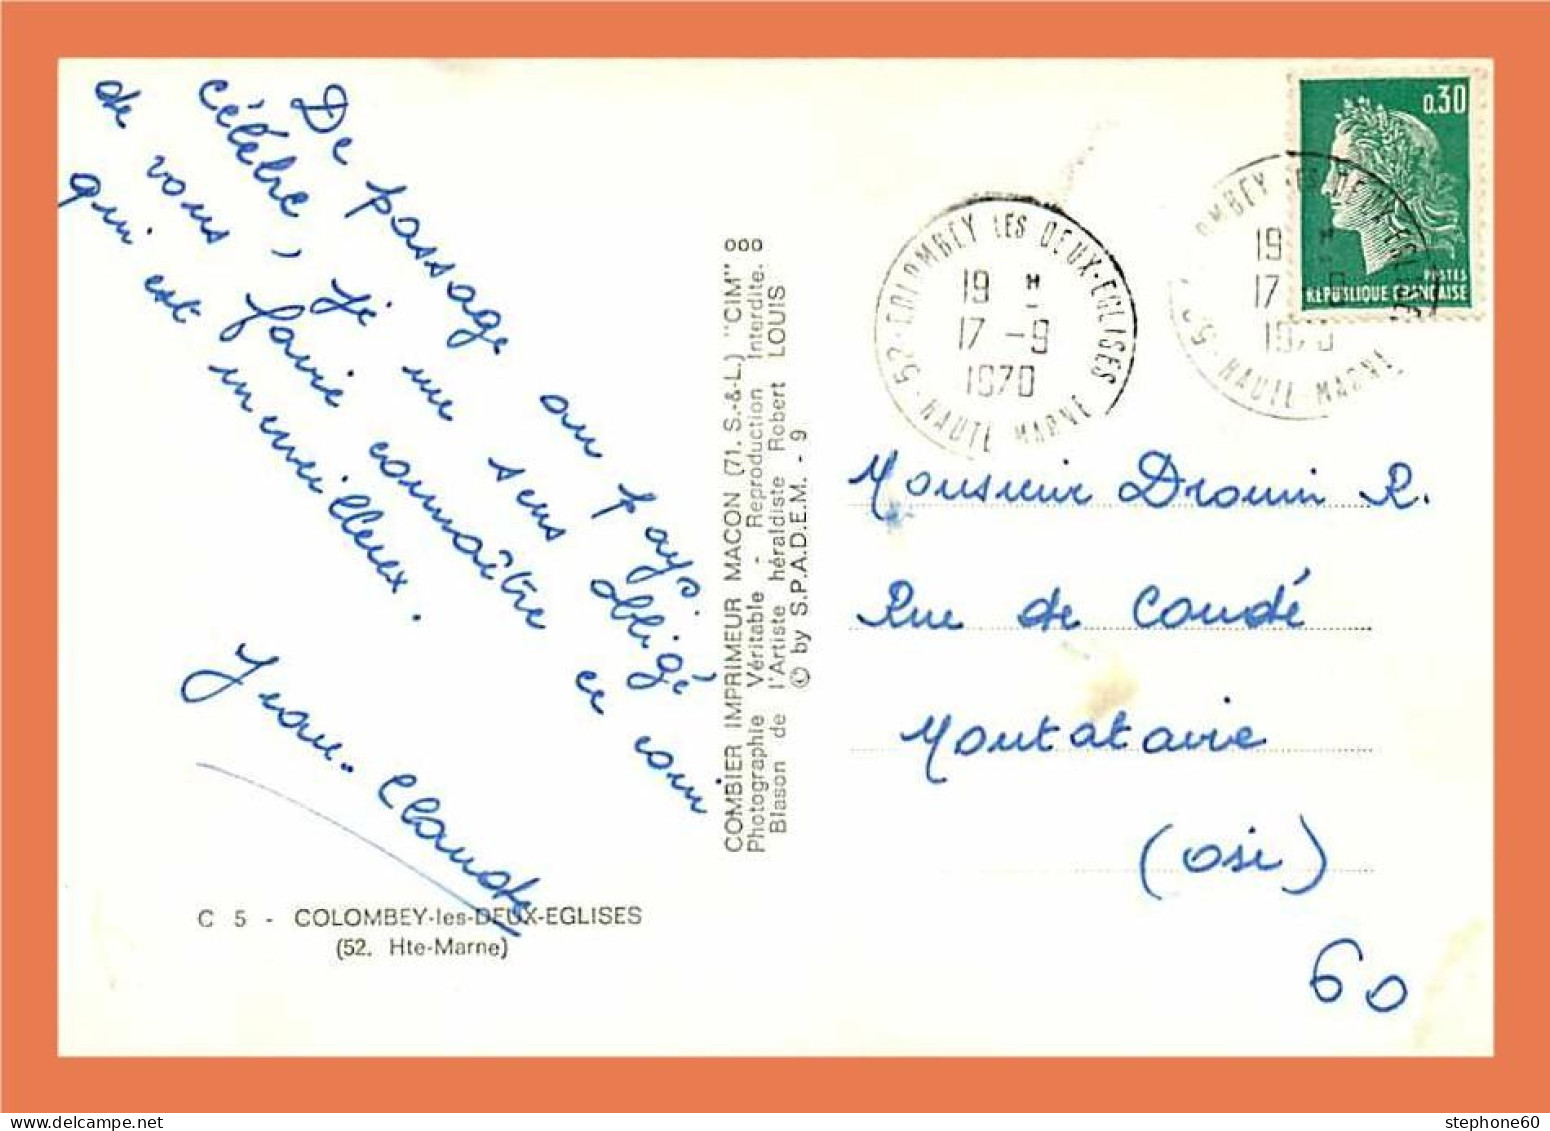 De passage au pays
célèbre, je me sens obligé
de vous faire connaître ce coin
qui est merveilleux.
Jean-Claude
C 5 - COLOMBEY-les-DEUX-EGLISES
(52. Hte-Marne)
COMBIER IMPRIMEUR MACON (71. S.-&-L.) "CIM"
Photographie Véritable - Reproduction Interdite.
Blason de l'Artiste héraldiste Robert LOUIS
© by S.P.A.D.E.M. - 9
COLOMBEY LES DEUX-EGLISES
19 H
17 -9
1970
52 - HAUTE MARNE
0.30
POSTES
REPUBLIQUE FRANÇAISE
OMBEY LES DEUX-EGLISES
19 H
17 -9
1970
52 - HAUTE-MARNE
Monsieur Drouin R.
Rue de Condé
Montataire
(Osie)
60
stephone60